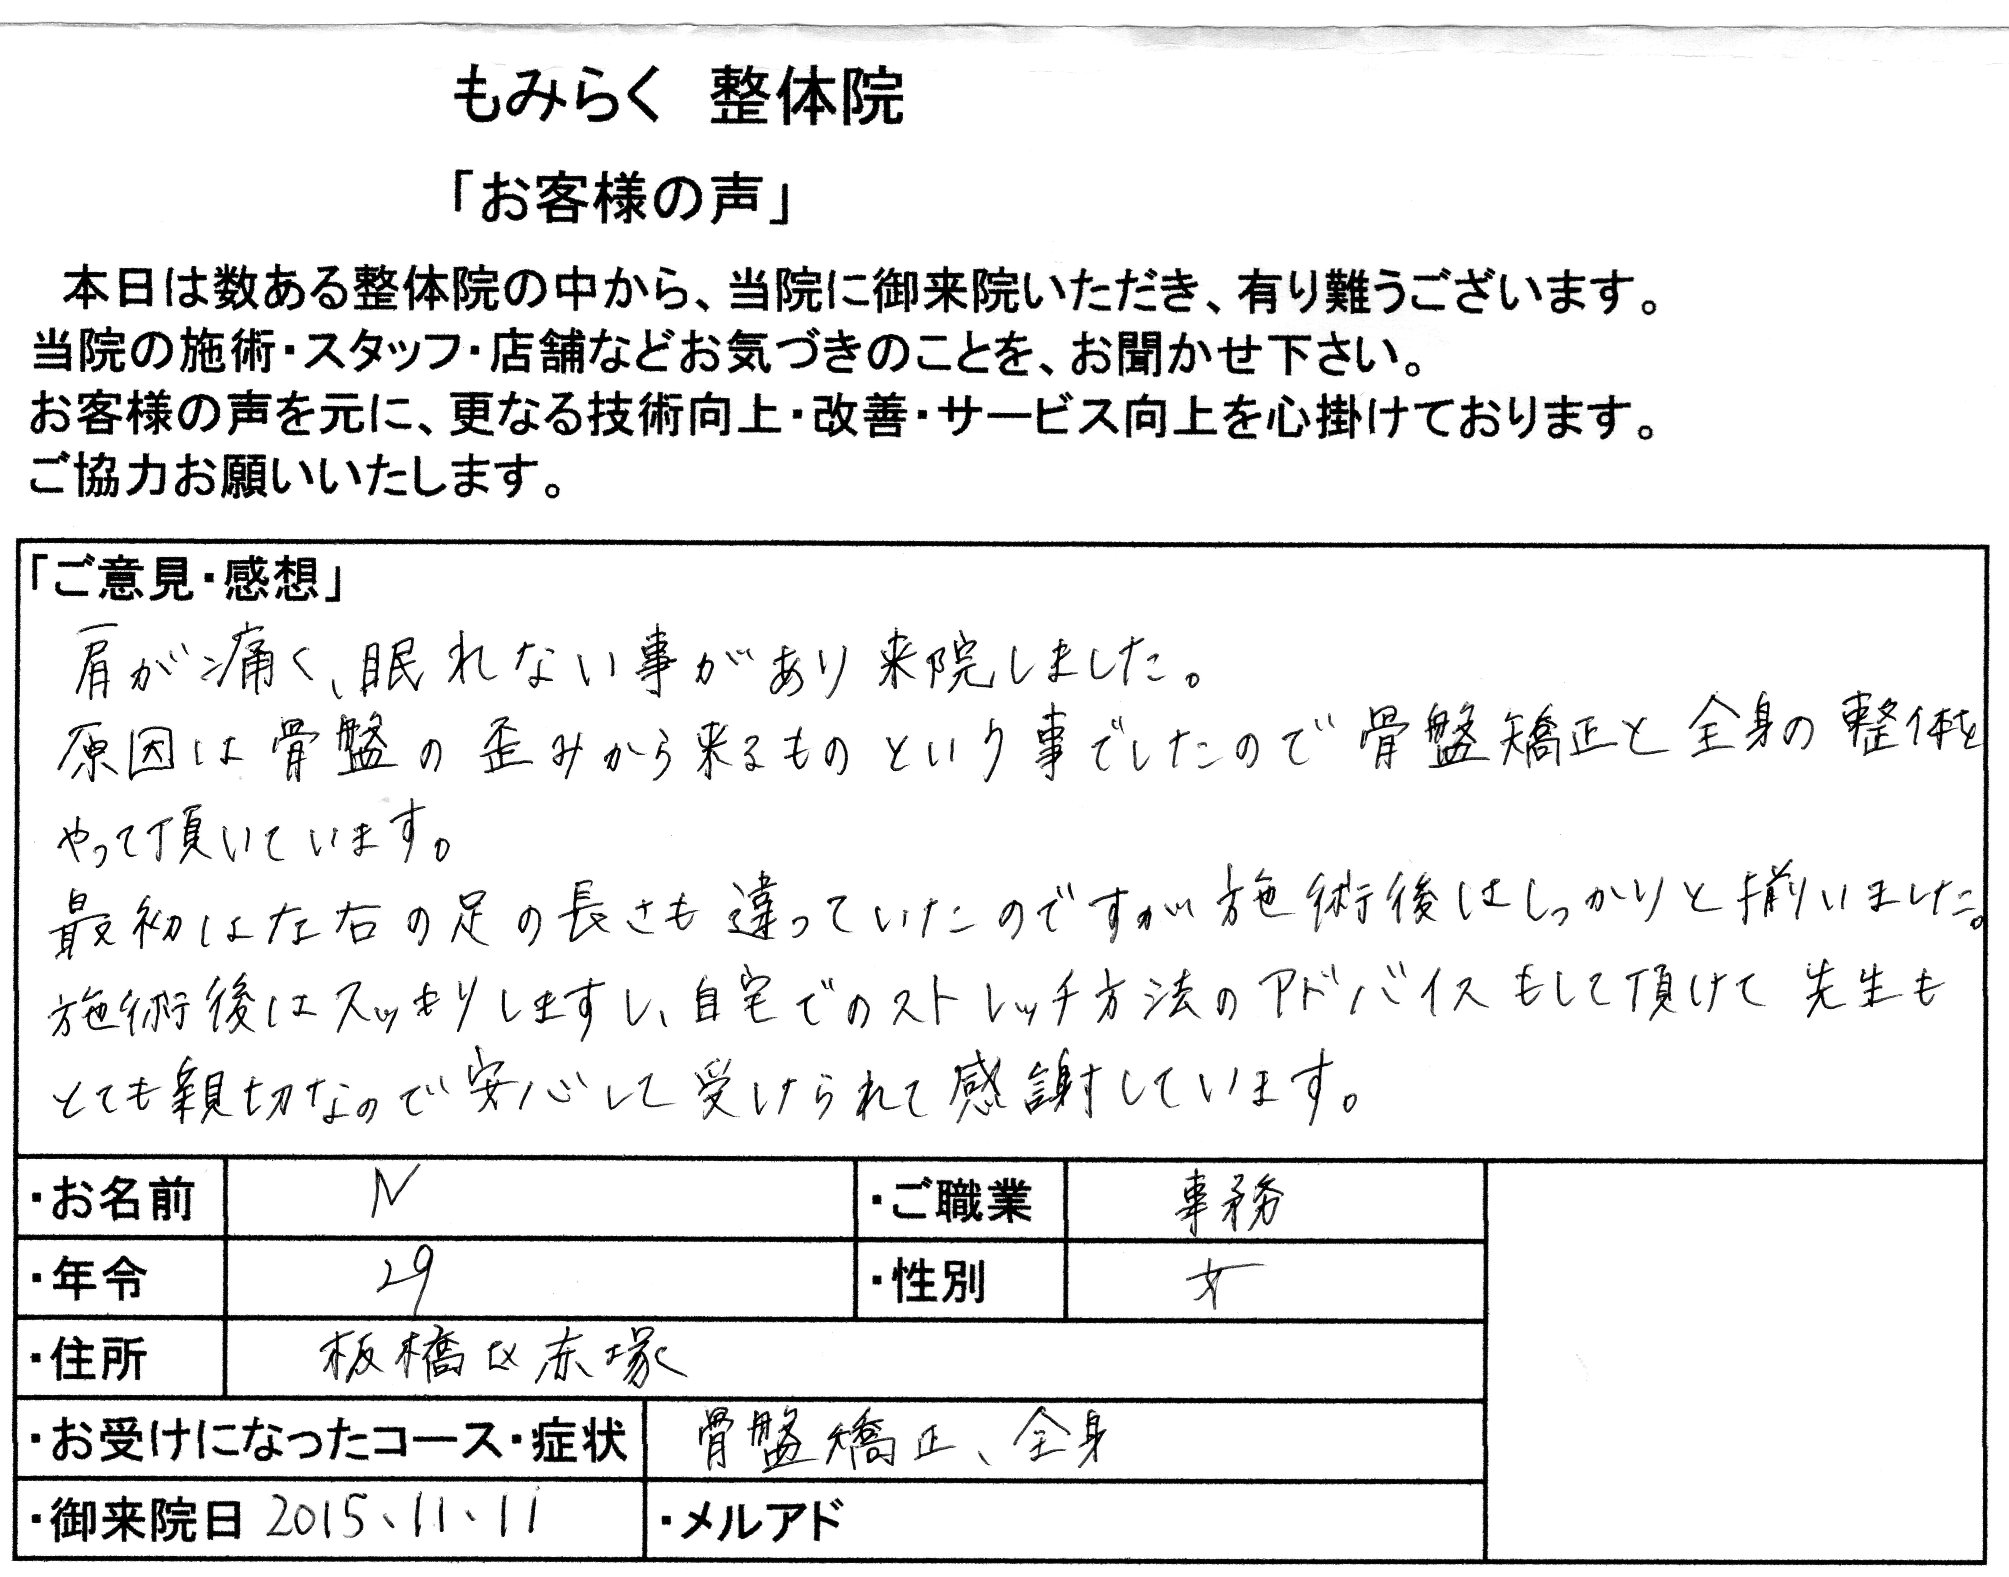 もみらく 整体院
「お客様の声」
本日は数ある整体院の中から、当院に御来院いただき、有り難うございます。
当院の施術・スタッフ・店舗などお気づきのことを、お聞かせ下さい。
お客様の声を元に、更なる技術向上・改善・サービス向上を心掛けております。
ご協力お願いいたします。
「ご意見・感想」
肩が痛く、眠れない事があり来院しました。
原因は骨盤の歪みから来るものという事でしたので骨盤矯正と全身の整体を
やって頂いています。
最初は左右の足の長さも違っていたのですが施術後はしっかりと揃いました。
施術後はスッキリしますし、自宅でのストレッチ方法のアドバイスもして頂けて先生も
とても親切なので安心して受けられて感謝しています。
・お名前 N ・ご職業 事務
・年令 29 ・性別 女
・住所 板橋区赤塚
・お受けになったコース・症状 骨盤矯正、全身
・御来院日 2015、11、11 ・メルアド